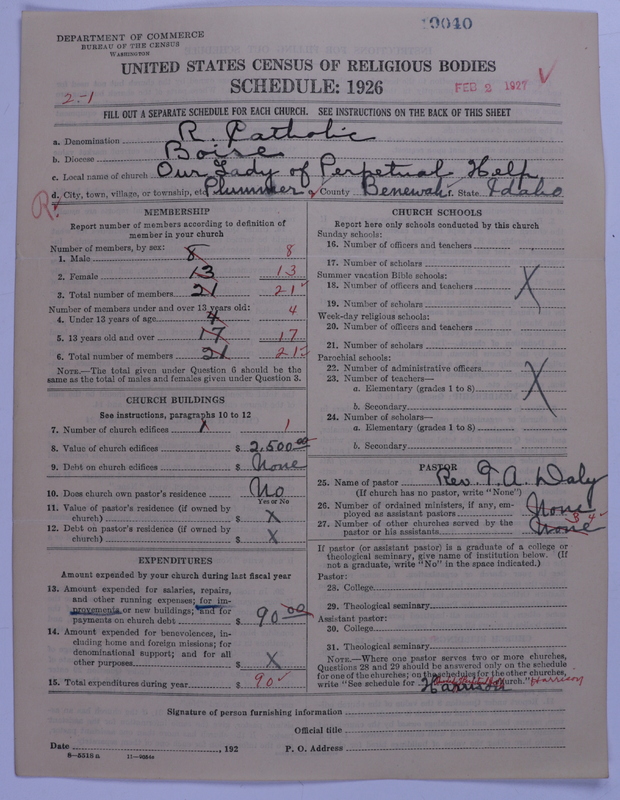 19040
DEPARTMENT OF COMMERCE
BUREAU OF THE CENSUS
WASHINGTON
UNITED STATES CENSUS OF RELIGIOUS BODIES
SCHEDULE: 1926
FEB 2 1927
2-1
FILL OUT A SEPARATE SCHEDULE FOR EACH CHURCH. SEE INSTRUCTIONS ON THE BACK OF THIS SHEET
a. Denomination R. Catholic
b. Diocese Boise
c. Local name of church Our Lady of Perpetual Help
d. City, town, village, or township, etc Plummer e. County Benewah f. State Idaho
R
MEMBERSHIP
Report number of members according to definition of
member in your church
Number of members, by sex:
1. Male 8 8
2. Female 13 13
3. Total number of members 21 21
Number of members under and over 13 years old:
4. Under 13 years of age 4 4
5. 13 years old and over 17 17
6. Total number of members 21 21
NOTE.—The total given under Question 6 should be
same as the total of males and females given under Question 3.
CHURCH BUILDINGS
See instructions, paragraphs 10 to 12
7. Number of church edifices 1 1
8. Value of church edifices $ 2,500 00
9. Debt on church edifices $ None
10. Does church own pastor's residence No
Yes or No
11. Value of pastor's residence (if owned by
church) $ X
12. Debt on pastor's residence (if owned by
church) $ X
EXPENDITURES
Amount expended by your church during last fiscal year
13. Amount expended for salaries, repairs,
and other running expenses; for im-
provements or new buildings; and for
payments on church debt $ 90 00
14. Amount expended for benevolences, in-
cluding home and foreign missions; for
denominational support; and for all
other purposes $ X
15. Total expenditures during year $ 90
CHURCH SCHOOLS
Report here only schools conducted by this church
Sunday schools:
16. Number of officers and teachers
17. Number of scholars
Summer vacation Bible schools:
18. Number of officers and teachers
19. Number of scholars
X
Week-day religious schools:
20. Number of officers and teachers
21. Number of scholars
Parochial schools:
22. Number of administrative officers
23. Number of teachers—
a. Elementary (grades 1 to 8)
X
b. Secondary
24. Number of scholars—
a. Elementary (grades 1 to 8)
b. Secondary
PASTOR
25. Name of pastor Rev. T. A. Daly
(If church has no pastor, write "None")
26. Number of ordained ministers, if any, em-
ployed as assistant pastors None
27. Number of other churches served by the
pastor or his assistants None
If pastor (or assistant pastor) is a graduate of a college or
theological seminary, give name of institution below. (If
not a graduate, write "No" in the space indicated.)
Pastor:
28. College
29. Theological seminary
Assistant pastor:
30. College
31. Theological seminary
NOTE.—Where one pastor serves two or more churches,
Questions 28 and 29 should be answered only on the schedule
for one of the churches; on the schedules for the other churches,
write "See schedule for Harrison church." Harrison
Signature of person furnishing information
Official title
Date , 192 P. O. Address
8—5518 a 11—9054a